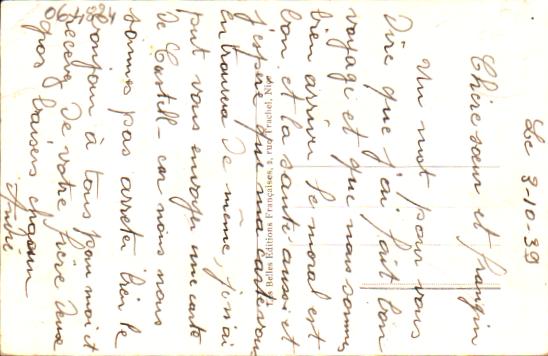 Le 3-10-39
Chère sœur et frangin
Un mot pour vous
dire que j'ai fait bon
voyage et que nous sommes
bien arrivé le moral est
bon et la santé aussi et
j'espère que ma carte vous
en trouvera de même, je n'ai
put vous envoyer une carte
de Castell- car nous nous
sommes pas arreté bien le
bonjour à tous pour moi et
recevez de votre frère deux
gros baisers chacun
André
Les Belles Editions Françaises, 2, rue Trachel, Nice